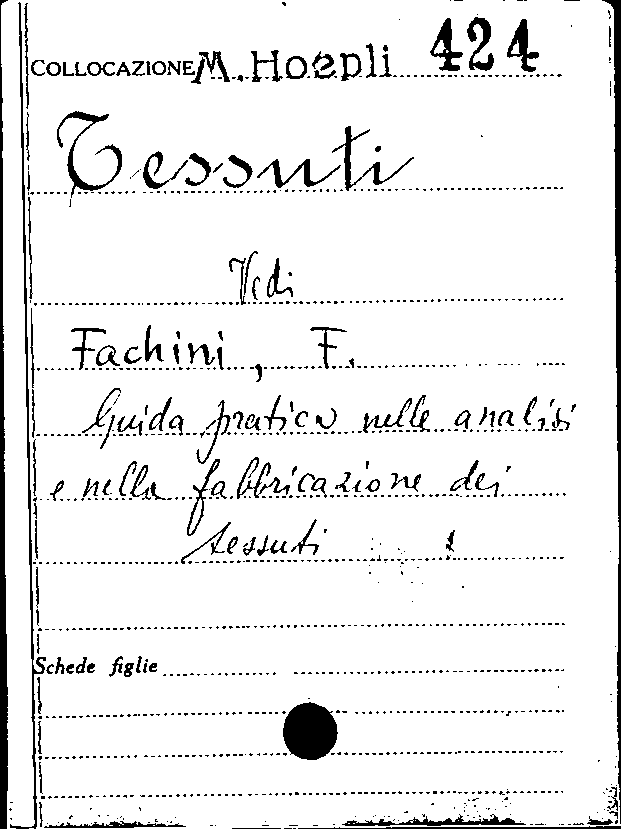 COLLOCAZIONE M. Hoepli 424
Tessuti
Vedi
Fachini, F.
Guida pratica nelle analisi
e nella fabbricazione dei
tessuti
Schede figlie